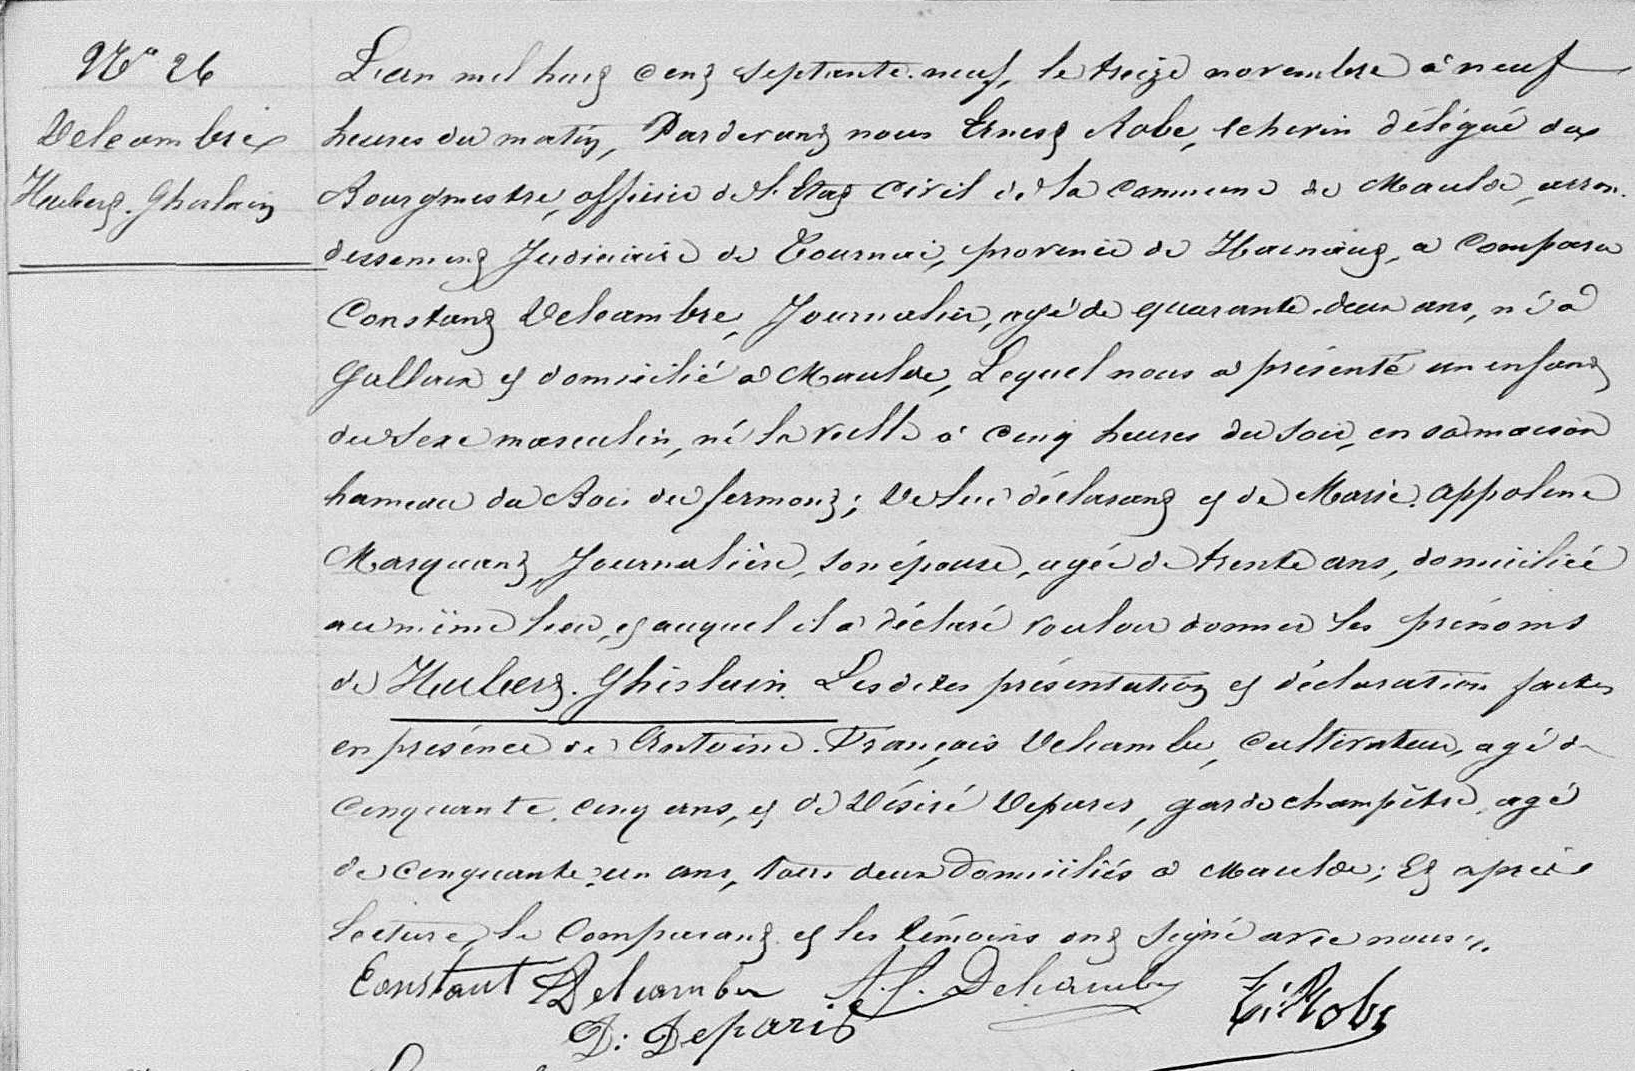 N° 26
Delcambre
Hubert. Ghislain
L'an mil huit cent septante-neuf, le treize novembre à neuf
heures du matin, Pardevant nous Ernest Robe, échevin délégué du
Bourgmestre, officier de l'Etat civil de la commune de Maulde, arron-
dissement Judiciaire de Tournai, province de Hainaut, a comparu
Constant Delcambre, Journalier, agé de quarante-deux ans, né à
Gallaix et domicilié à Maulde, Lequel nous a présenté un enfant
du sexe masculin, né la veille à cinq heures du soir, en sa maison
hameau du Bois du fermont; De lui déclarant et de Marie. Appoline
Marquant, Journalière, son épouse, agée de trente ans, domiciliée
au même lieu, et auquel il a déclaré vouloir donner les prénoms
de Hubert. Ghislain. Lesdites présentation et déclaration faites
en présence de Antoine. François Delcambre, cultivateur, agé de
cinquante-cinq ans, et de Désiré Deparis, garde champêtre, agé
de cinquante-un ans, tous deux Domiciliés à Maulde; Et après
lecture, le Comparant et les témoins ont signé avec nous.
Constant Delcambre A. f. Delcambre E: Robe
D: Deparis